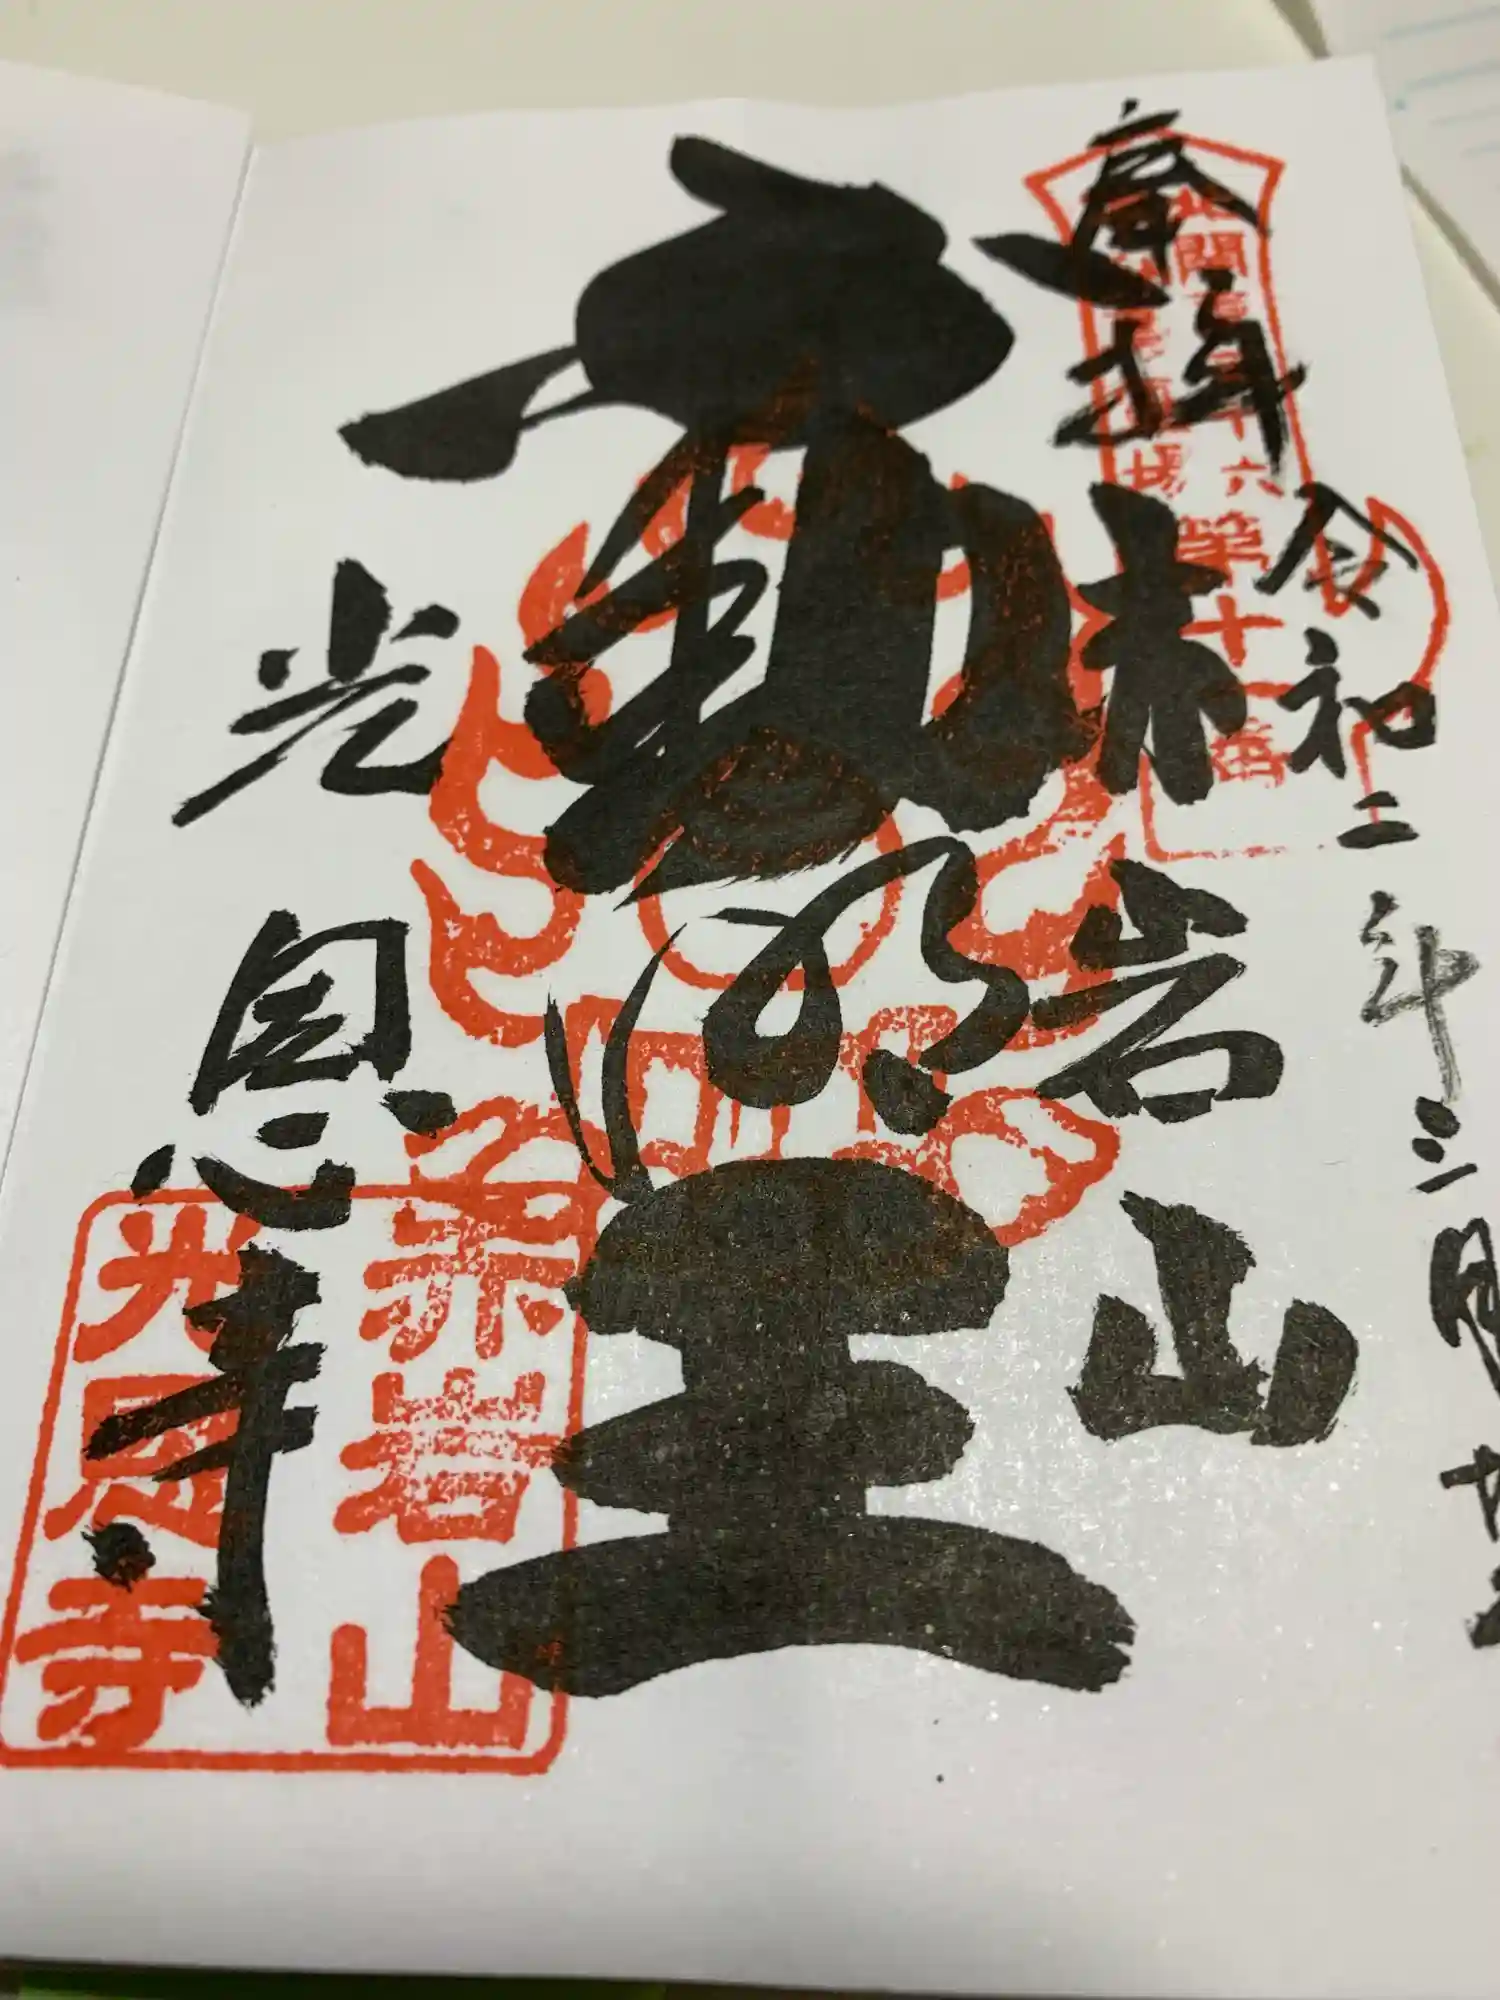 奉拝
令和二年三月
北関東三十六
不動尊霊場
第十一番
赤岩山
不動明王
光恩寺
赤岩山
光恩寺